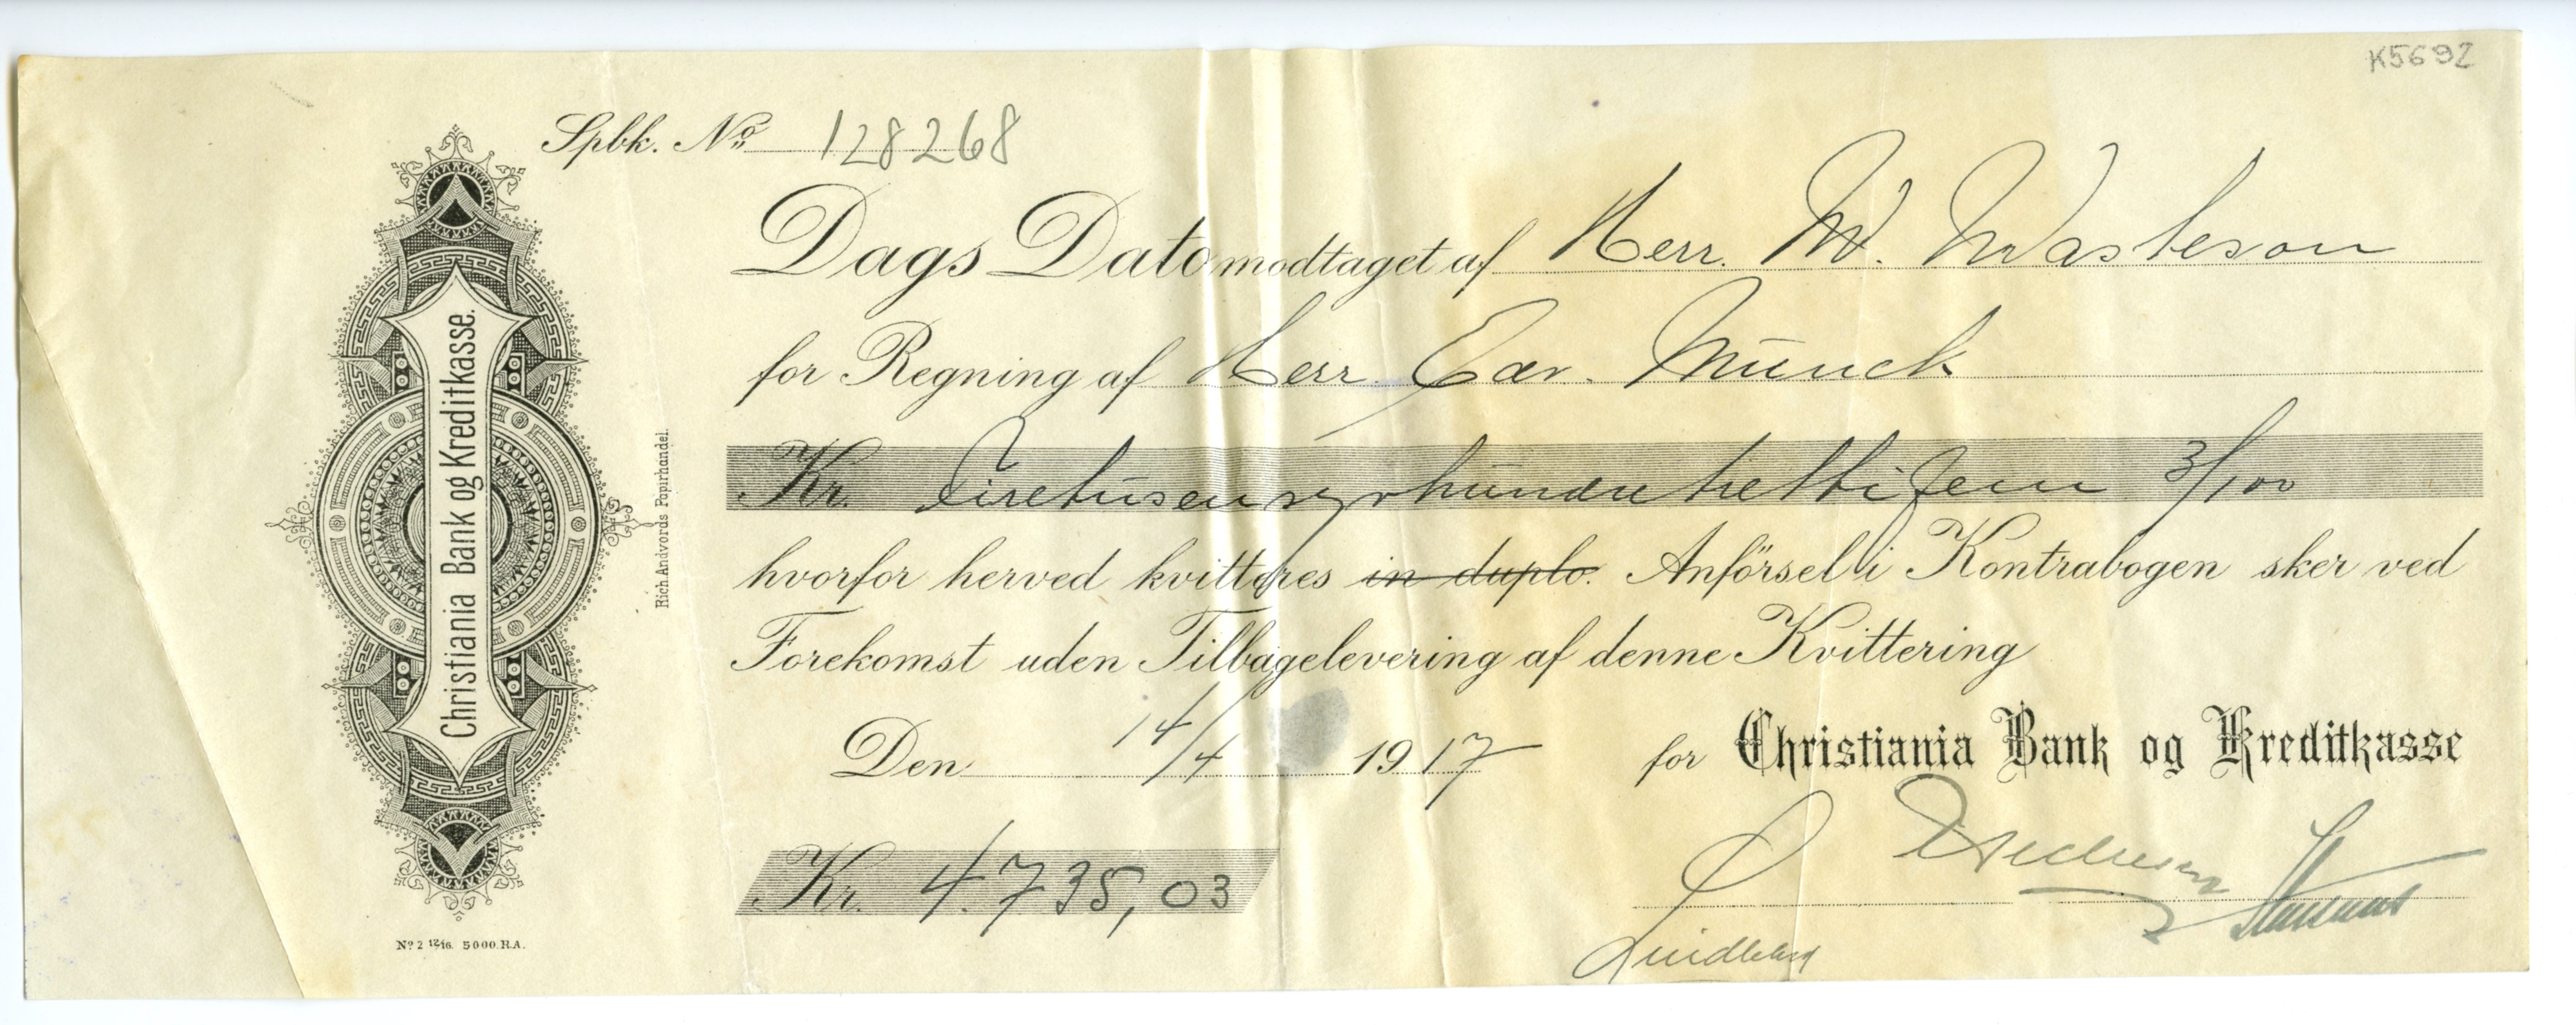 K5692
Spbk. No 128268
Dags Dato modtaget af Herr. W. Wasteson
for Regning af Herr. Edv. Munch
Kr. Firetusensyvhundretrettifem 3/100
hvorfor herved kvitteres in duplo. Anförsel i Kontrabogen sker ved
Forekomst uden Tilbagelevering af denne Kvittering
Den 14/4 1917 for Christiania Bank og Kreditkasse
Kr. 4.735,03
Lindberg
Christiania Bank og Kreditkasse.
Rich. Andvords Papirhandel.
No 2 12/16. 5000. H.A.